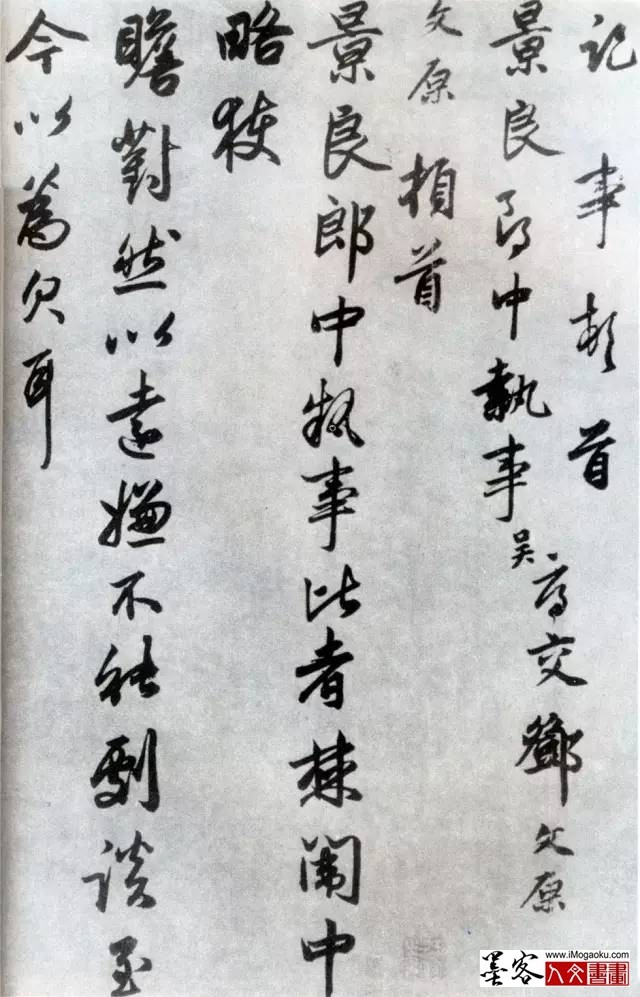 記事頓首
景良郎中執事吳交鄧文原
文原頓首
景良郎中執事比者棘闈中
略獲
瞻對然以遠嫌不能劇談至
今以為欠耳
墨客 www.iMogaoku.com
人文書畫